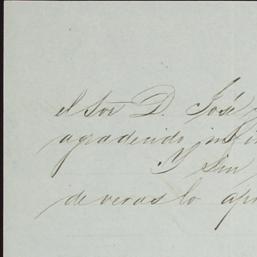 el Sor D. José
agradecido
Y sin
de veras lo apr